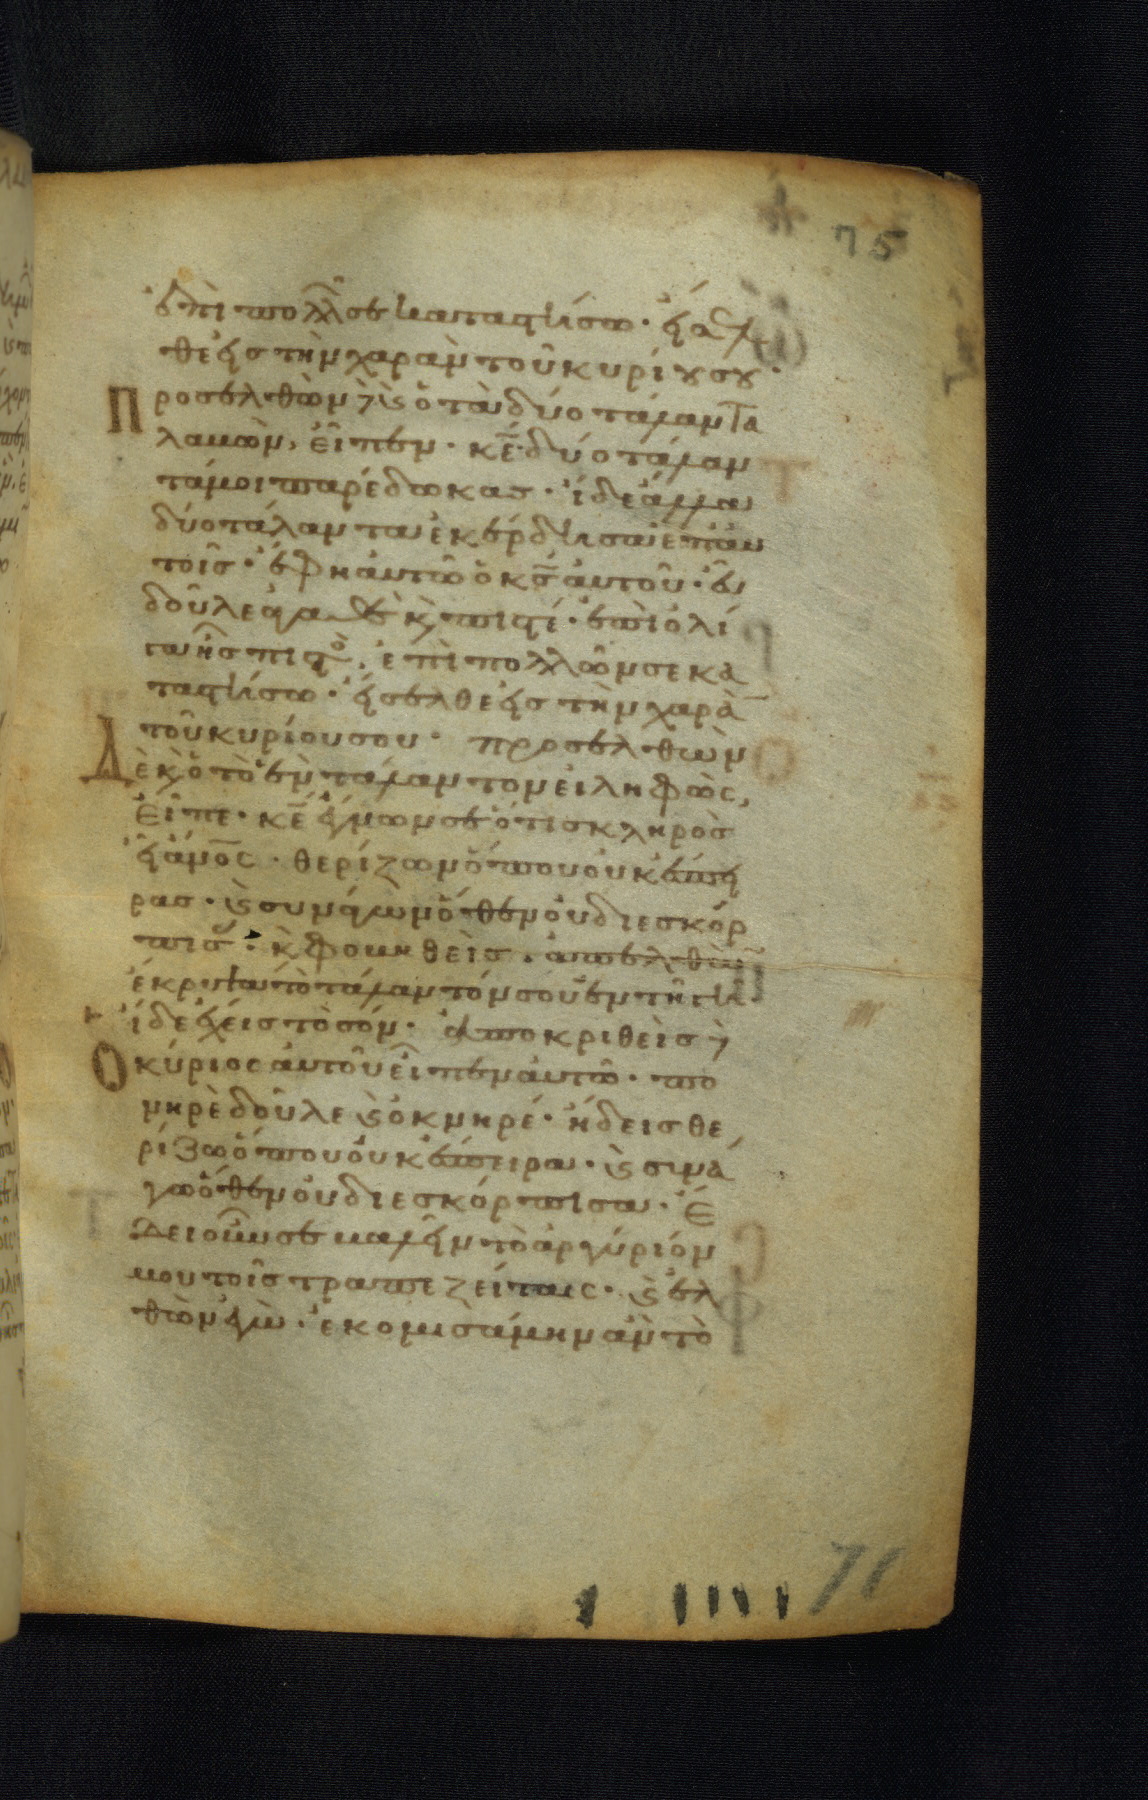 75
ἐπὶ πολλῶν σε καταστήσω· εἴσελ
θε εἰς τὴν χαρὰν τοῦ κυρίου σου·
Προσελθὼν δὲ καὶ ὁ τὰ δύο τάλαντα
λαβὼν, εἶπεν· κε̄ δύο τάλαν
τά μοι παρέδωκας· ἴδε ἄλλα
δύο τάλαντα ἐκέρδησα ἐπ' αὐ
τοῖς· ἔφη αὐτῶ ὁ κς̄ αὐτοῦ· εὖ
δοῦλε ἀγαθὲ κ πιστέ· ἐπὶ ὀλί
γα ἦς πιστὸ, ἐπὶ πολλῶν σε κα
ταστήσω· εἴσελθε εἰς τὴν χαρὰ
τοῦ κυρίου σου· προσελθὼν
Δὲ κ ὁ τὸ ἓν τάλαντον εἰληφὼς,
εἶπε· κε̄ ἔγνων σε ὅτι σκληρὸς
εἶ ἄνο̄ς· θερίζων ὅπου οὐκ ἔσπει
ρας· καὶ συνάγων ὅθεν οὐ διεσκόρ
πισ· κ φοβηθεὶς· ἀπελθὼν
ἔκρυψα τὸ τάλαντόν σου ἐν τῆ γῆ·
ἴδε ἔχεις τὸ σόν· ἀποκριθεὶς δὲ
Ὁ κύριος αὐτοῦ εἶπεν αὐτῶ· πο
νηρὲ δοῦλε καὶ ὀκνηρέ· ἤδεις θε
ρίζω ὅπου οὐκ ἔσπειρα· καὶ συνά
γω ὅθεν οὐ διεσκόρπισα· ἔ
δει οὖν σε βαλεῖν τὸ ἀργύριόν
μου τοῖς τραπεζείταις· καὶ ἐλ
θὼν ἐγὼ· ἐκομισάμην ἂν τὸ
71